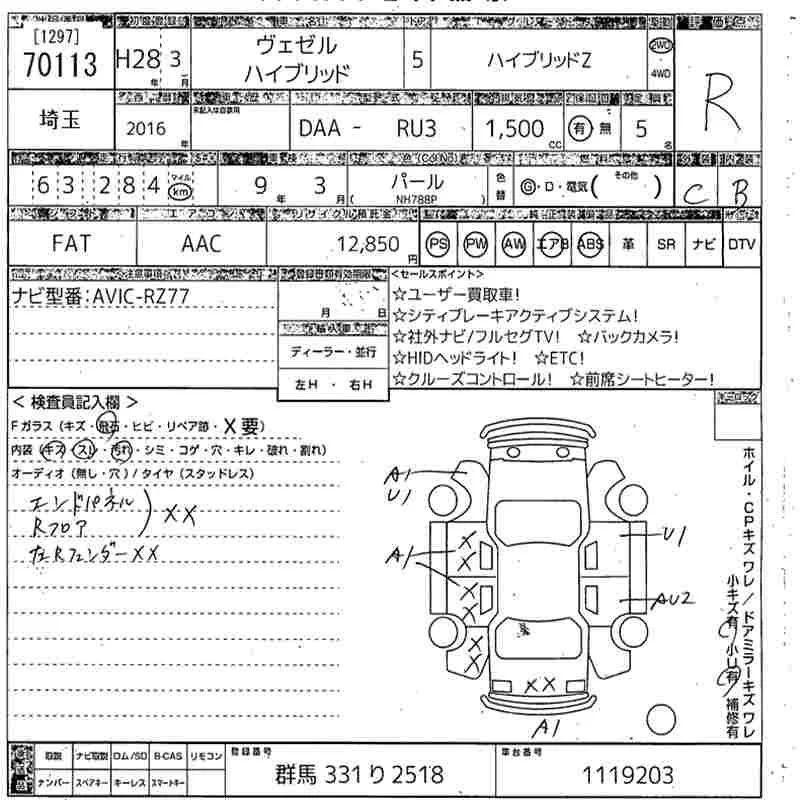 [1297]
70113
H28 3
年 月
ヴェゼル
ハイブリッド
5
ハイブリッドZ
2WD
4WD
R
埼玉
2016
年
未記入は自家用
DAA - RU3
1,500
CC
有・無
5
名
6 3 2 8 4
マイル
km
9 年 3 月
パール
( NH788P )
色替
G・D・電気( その他 )
C
B
FAT
AAC
12,850 円
PS
PW
AW
エアB
ABS
革
SR
ナビ
DTV
ナビ型番:AVIC-RZ77
月 日
ディーラー・並行
左H ・ 右H
<セールスポイント>
☆ユーザー買取車!
☆シティブレーキアクティブシステム!
☆社外ナビ/フルセグTV! ☆バックカメラ!
☆HIDヘッドライト! ☆ETC!
☆クルーズコントロール! ☆前席シートヒーター!
< 検査員記入欄 >
Fガラス(キズ・飛石・ヒビ・リペア跡・X要)
内装(キズ・スレ・汚れ・シミ・コゲ・穴・キレ・破れ・割れ)
オーディオ(無し・穴)/タイヤ(スタッドレス)
エンドパネル
Rフロア
) XX
左Rフェンダー XX
A1
U1
A1
X
X
X
X
X
X
U1
AU2
XX
A1
ホイル・CPキズ ワレ/ドアミラーキズ ワレ
小キズ有 小U有 補修有
取説
ナビ取説
ロム/SD
B-CAS
リモコン
ナンバー
スペアキー
キーレス
スマートキー
登録番号
群馬 331 り 2518
車台番号
1119203